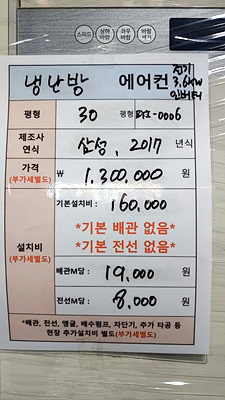 스피드 상하바람 좌우바람 바람세기
냉난방 에어컨 전기 3.6kW 인버터
평형 30 평형
제조사 연식 삼성, 2017 년식
가격 (부가세별도) ₩ 1,300,000 원
기본설치비 : 160,000
*기본 배관 없음*
*기본 전선 없음*
설치비 (부가세별도)
배관M당 : 19,000 원
전선M당 : 8,000 원
*배관, 전선, 앵글, 배수펌프, 차단기, 추가 타공 등
현장 추가설치비 별도(부가세별도)